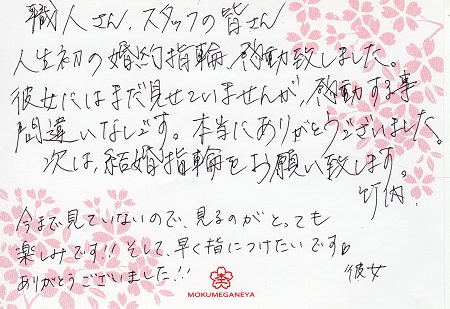 職人さん、スタッフの皆さん
人生初の婚約指輪、感動致しました。
彼女にはまだ見せていませんが、感動する事
間違いなしです。本当にありがとうございました。
次は、結婚指輪をお願い致します。
竹内
今まで見ていないので、見るのがとっても
楽しみです!! そして、早く指につけたいです♡
ありがとうございました!!
彼女
MOKUMEGANEYA